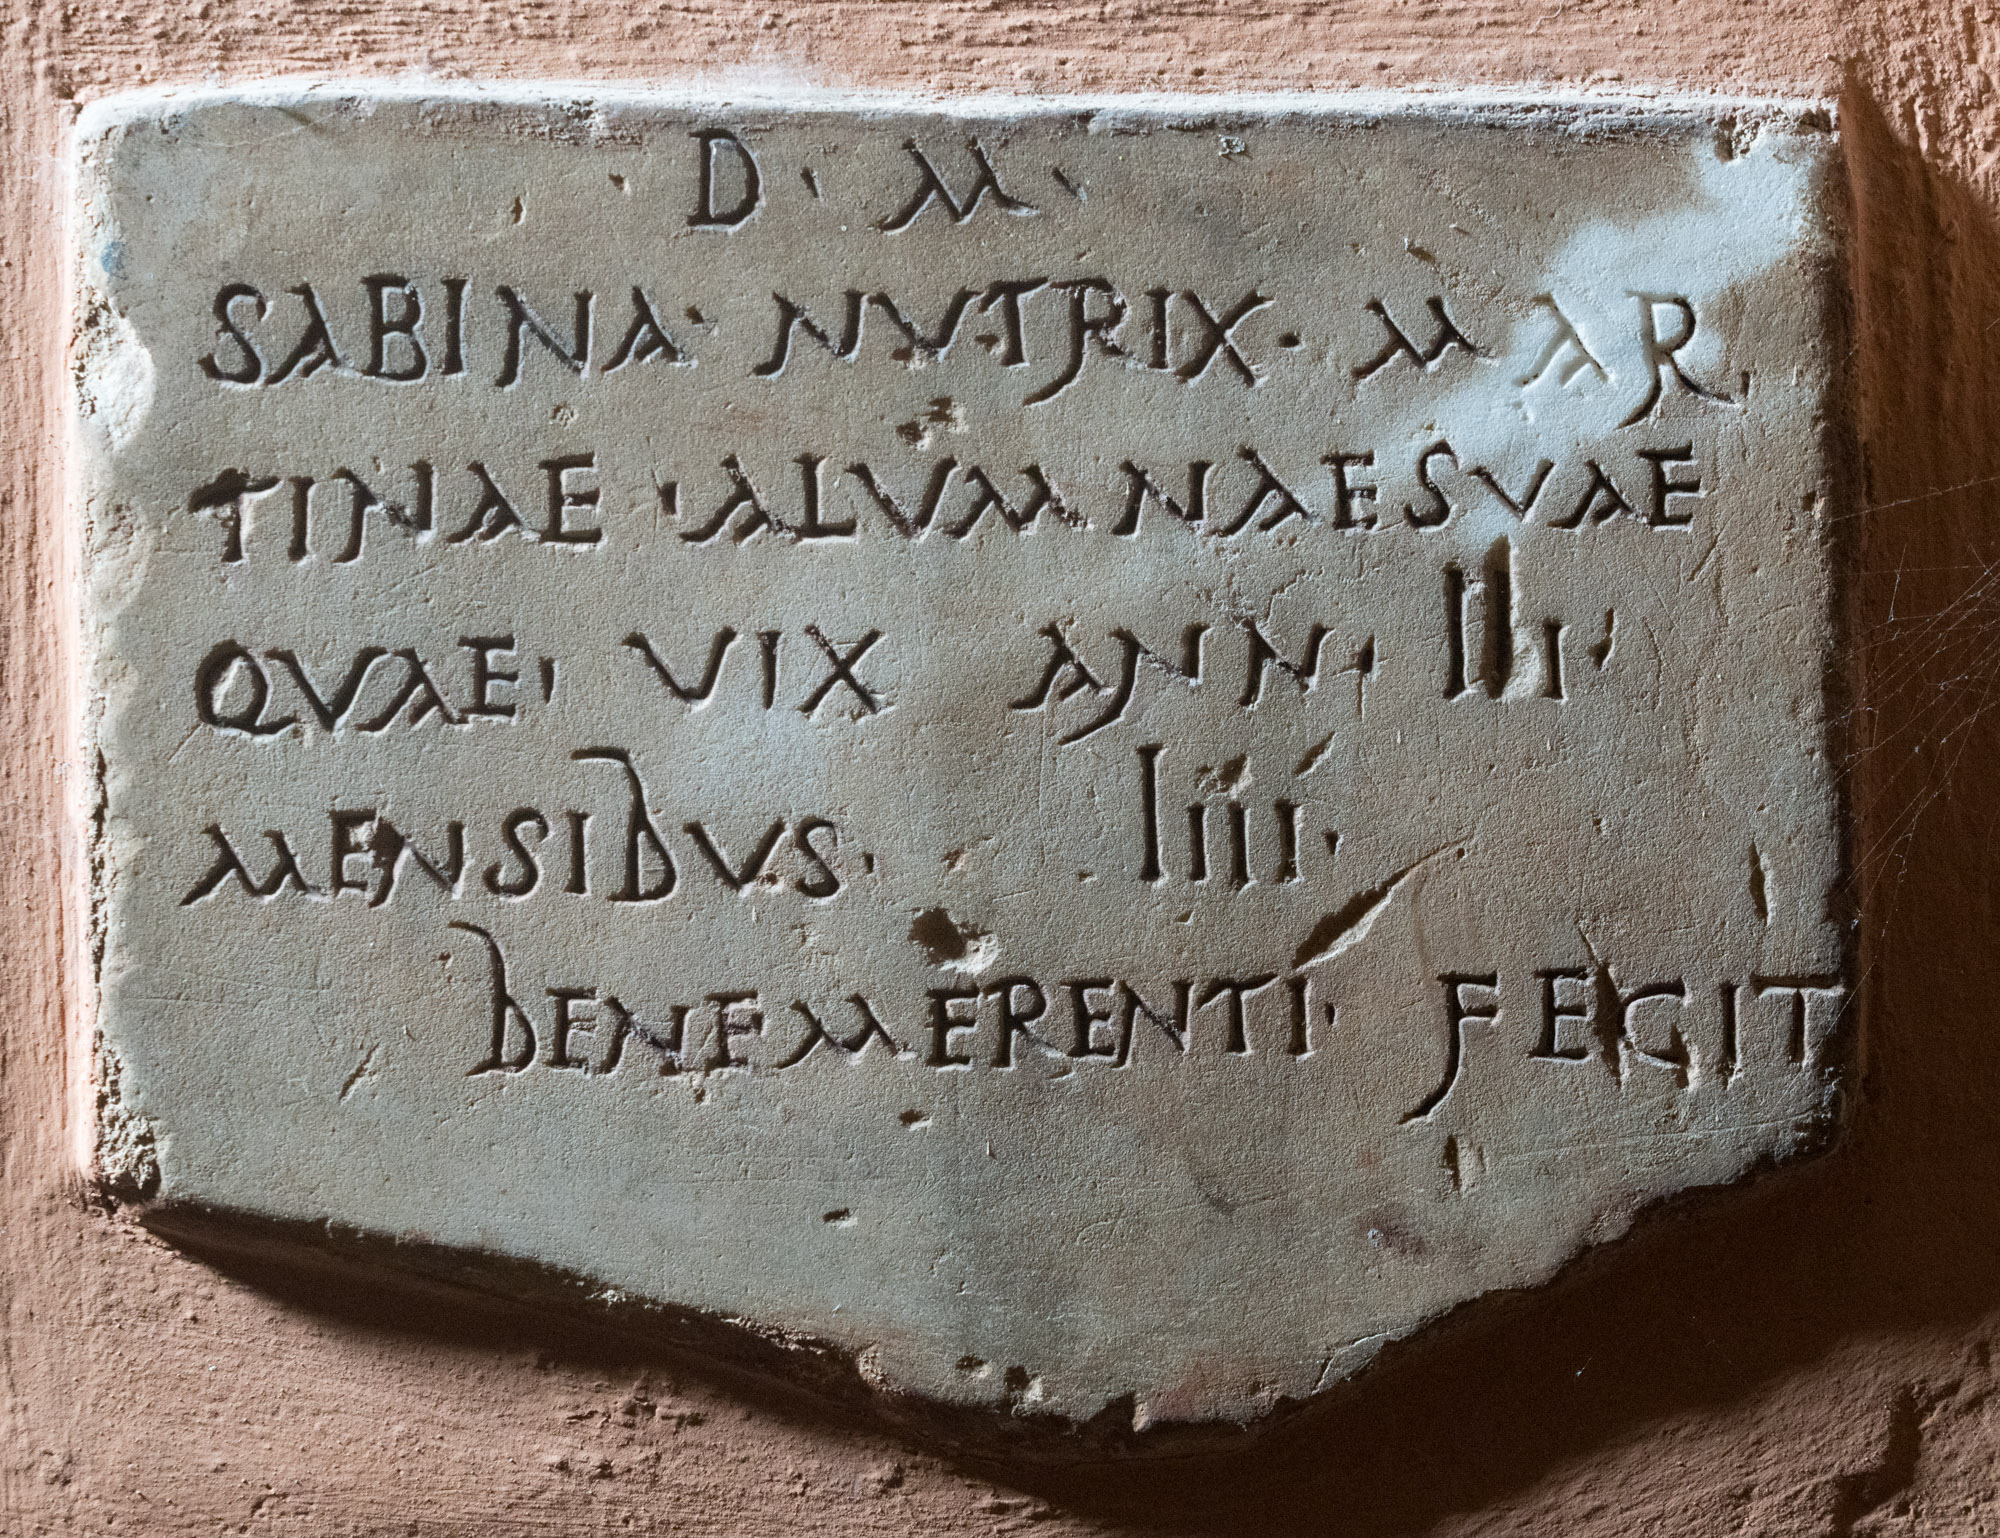 · D · M ·
SABINA · NVTRIX · MAR
TINAE · ALVMNAE SVAE
QVAE · VIX ANN · III ·
MENSIBVS · IIII ·
BENEMERENTI · FECIT